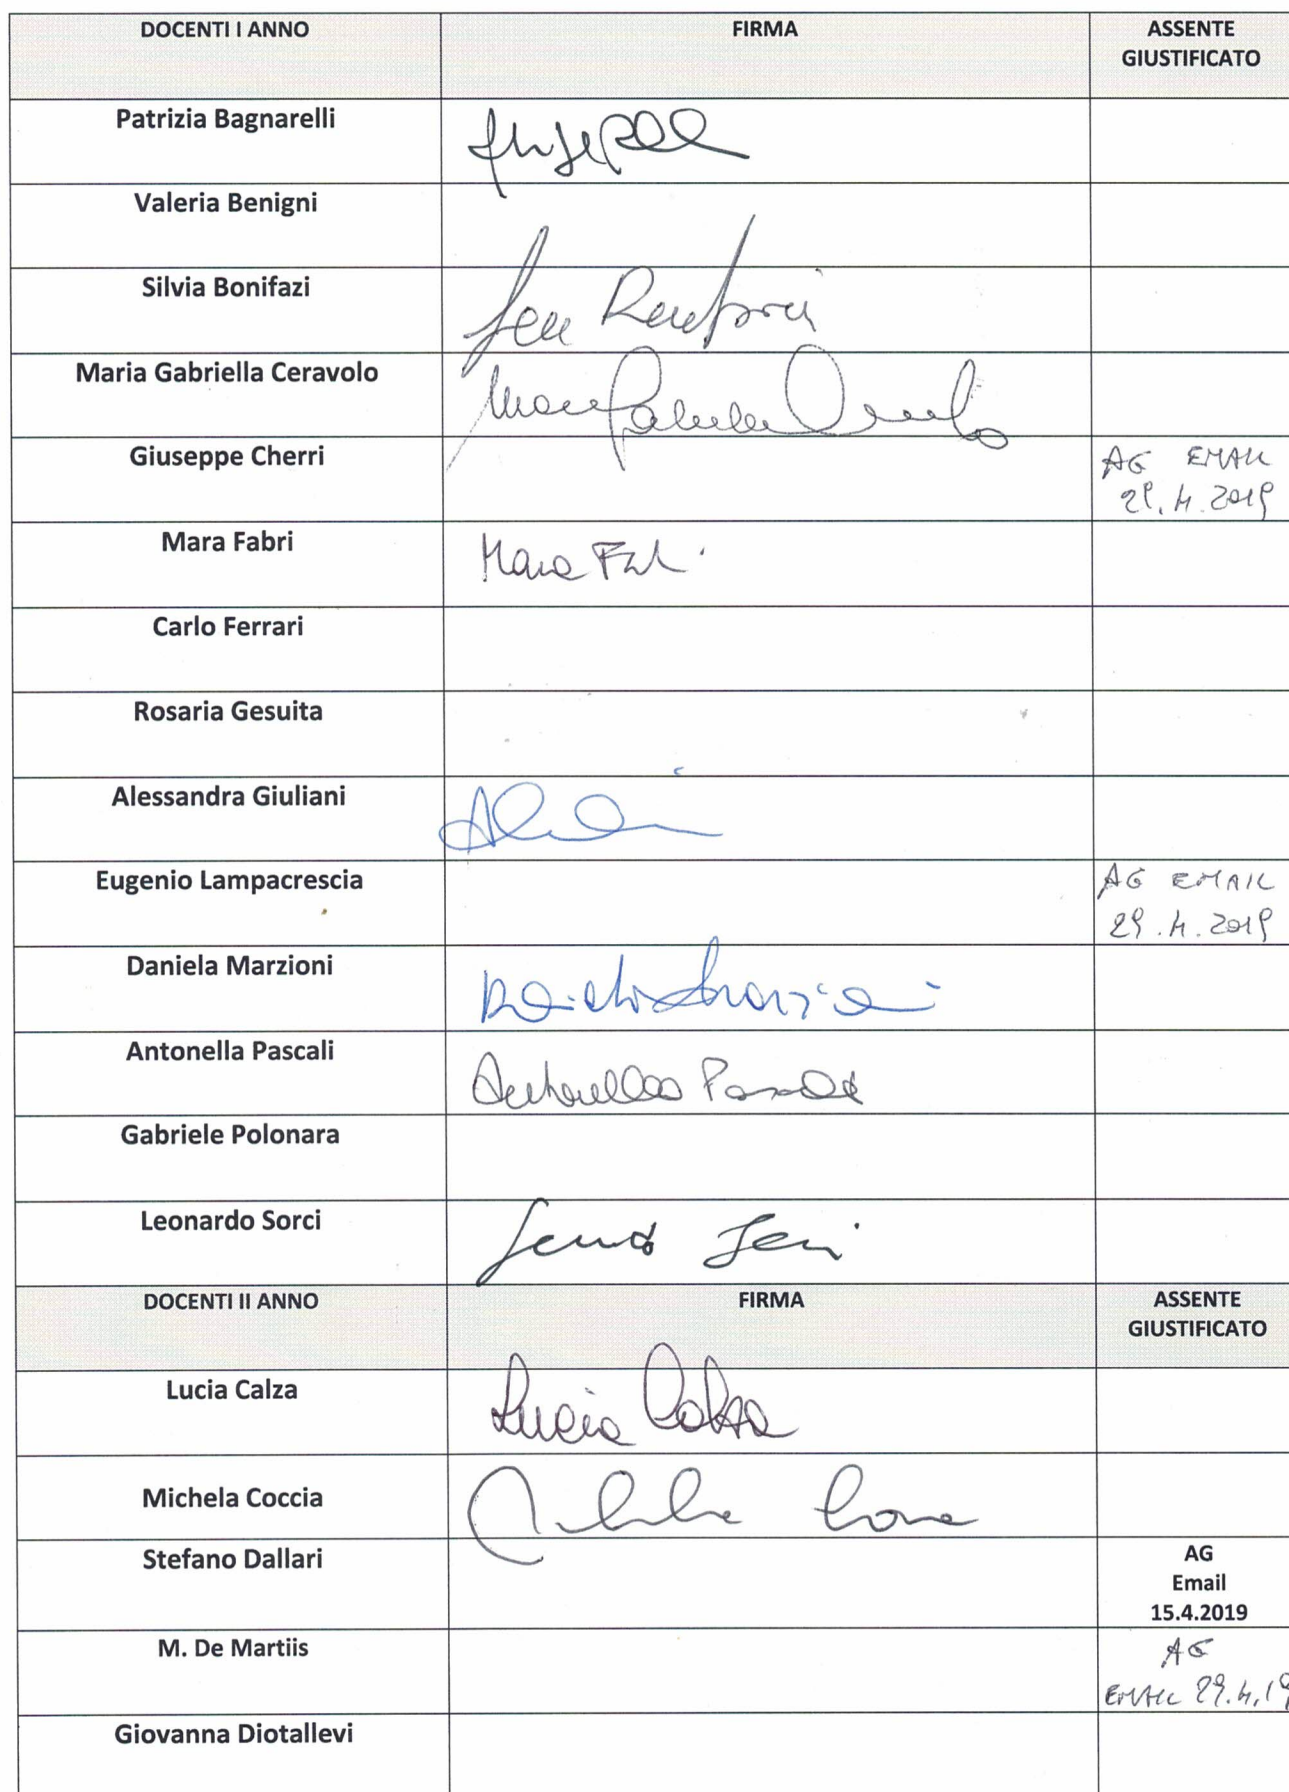 DOCENTI I ANNO FIRMA ASSENTE
GIUSTIFICATO
Patrizia Bagnarelli
Valeria Benigni
Silvia Bonifazi
Maria Gabriella Ceravolo
Giuseppe Cherri AG EMAIL
29.4.2019
Mara Fabri Mara
Carlo Ferrari
Rosaria Gesuita
Alessandra Giuliani
Eugenio Lampacrescia AG EMAIL
29.4.2019
Daniela Marzioni
Antonella Pascali Antonella Pascali
Gabriele Polonara
Leonardo Sorci
DOCENTI II ANNO FIRMA ASSENTE
GIUSTIFICATO
Lucia Calza Lucia Calza
Michela Coccia
Stefano Dallari AG
Email
15.4.2019
M. De Martiis AG
EMAIL 29.4.19
Giovanna Diotallevi